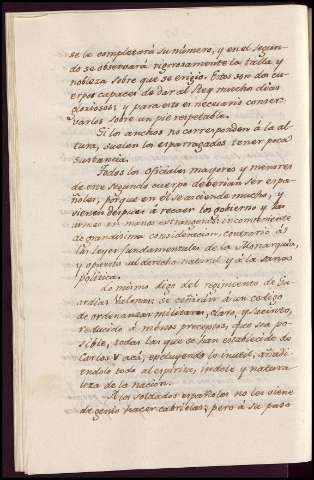 se le completará su número, y en el segun-
do se observará rigorosamente la talla y
nobleza sobre que se erigió. Estos son dos cu-
erpos capaces de dar al Rey muchos dias
gloriosos; y para esto es necesario conser-
varlos sobre un pie respetable.
Si los anchos no corresponden á la al-
tura, suelen los esparragados tener poca
sustancia.
Todos los oficiales mayores y menores
de este segundo cuerpo deberían ser espa-
ñoles; porque en el se asciende mucho, y
vienen despues á recaer los gobiernos y las
armas en manos extrangeras: inconveniente
de grandisima consideracion, contrario á
las leyes fundamentales de la Monarquía,
y opuesto al derecho natural y á la sana
política.
Lo mismo digo del regimiento de Gu-
ardias Valonas: se ceñirán á un codigo
de ordenanzas militares, claro, y sucinto,
reducido á menos preceptos, que sea po-
sible, todas las que se han establecido de
Carlos V acá, excluyendo lo inutil, añadi-
endolo todo al espiritu, indole y natura-
leza de la nacion.
A los soldados españoles no les viene
de genio hacer cabriolas; pero á su paso